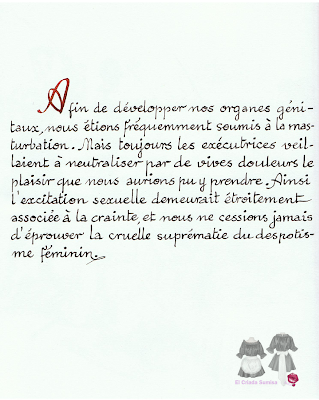 Afin de développer nos organes géni-
taux, nous étions fréquemment soumis à la mas-
turbation. Mais toujours les exécutrices veil-
laient à neutraliser par de vives douleurs le
plaisir que nous aurions pu y prendre. Ainsi
l'excitation sexuelle demeurait étroitement
associée à la crainte, et nous ne cessions jamais
d'éprouver la cruelle suprématie du despotis-
me féminin.